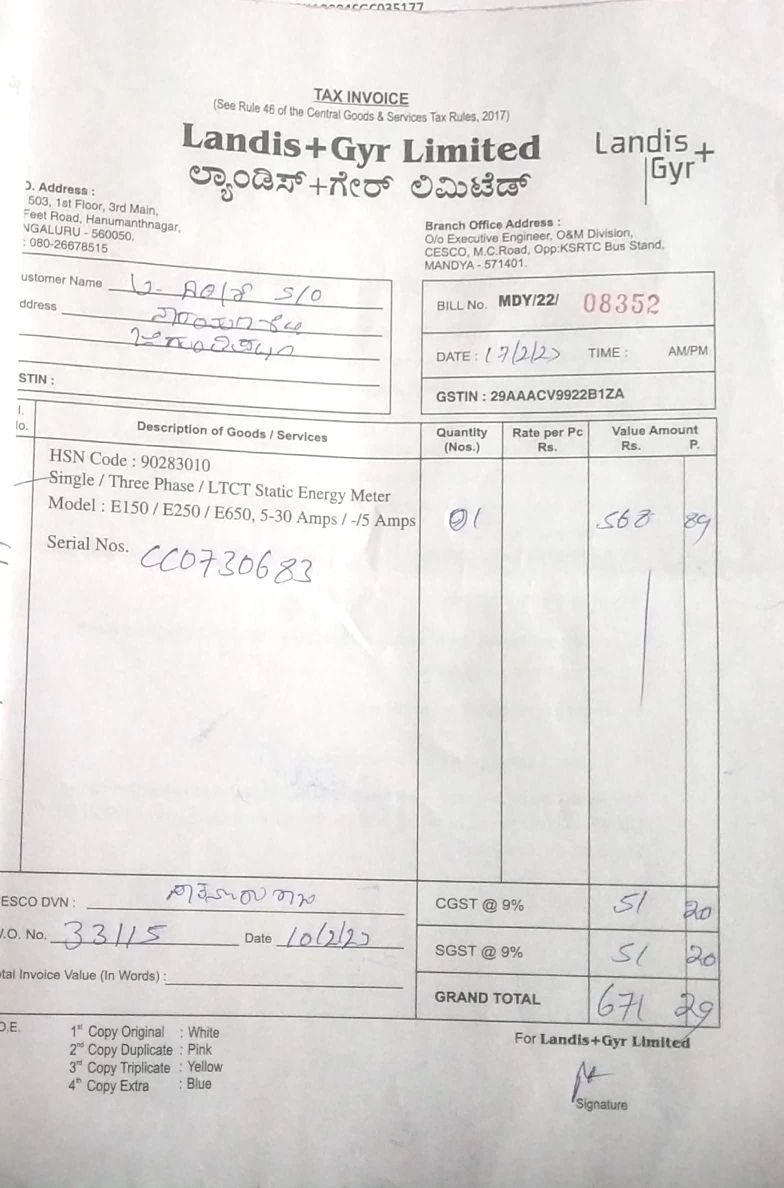 CCC035177
TAX INVOICE
(See Rule 46 of the Central Goods & Services Tax Rules, 2017)
Landis+Gyr Limited
ಲ್ಯಾಂಡಿಸ್+ಗೇರ್ ಲಿಮಿಟೆಡ್
Landis+
Gyr
Address :
503, 1st Floor, 3rd Main,
Feet Road, Hanumanthnagar,
NGALURU - 560050,
: 080-26678515
Branch Office Address :
O/o Executive Engineer, O&M Division,
CESCO, M.C.Road, Opp:KSRTC Bus Stand,
MANDYA - 571401.
ustomer Name S/O
ddress
STIN :
BILL No. MDY/22/ 08352
DATE : 17/2/23 TIME : AM/PM
GSTIN : 29AAACV9922B1ZA
l.
lo.
Description of Goods / Services
Quantity
(Nos.)
Rate per Pc
Rs.
Value Amount
Rs. P.
HSN Code : 90283010
Single / Three Phase / LTCT Static Energy Meter
Model : E150 / E250 / E650, 5-30 Amps / -/5 Amps 01 568 89
Serial Nos. CC0730683
ESCO DVN :
CGST @ 9% 51 20
.O. No. 33115 Date 10/2/23
SGST @ 9% 51 20
tal Invoice Value (In Words) :
GRAND TOTAL 671 29
O.E.
1st Copy Original : White
2nd Copy Duplicate : Pink
3rd Copy Triplicate : Yellow
4th Copy Extra : Blue
For Landis+Gyr Limited
Signature